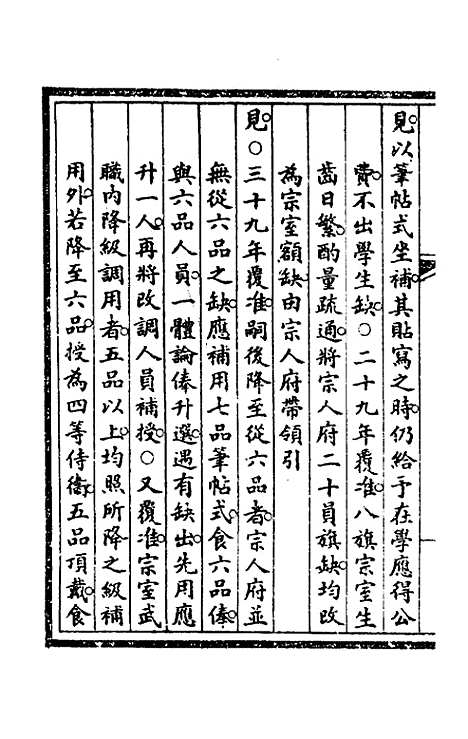 見以筆帖式坐補其貼寫之時仍給予在學應得公
費不出學生缺○二十九年覆准八旗宗室生
齒日繁酌量疏通將宗人府二十員旗缺均改
為宗室額缺由宗人府帶領引
見○三十九年覆准嗣後降至從六品者宗人府並
無從六品之缺應補用七品筆帖式食六品俸
與六品人員一體論俸升選遇有缺出先用應
升一人再將改調人員補授○又覆准宗室武
職內降級調用者五品以上均照所降之級補
用外若降至六品授為四等侍衛五品頂戴食